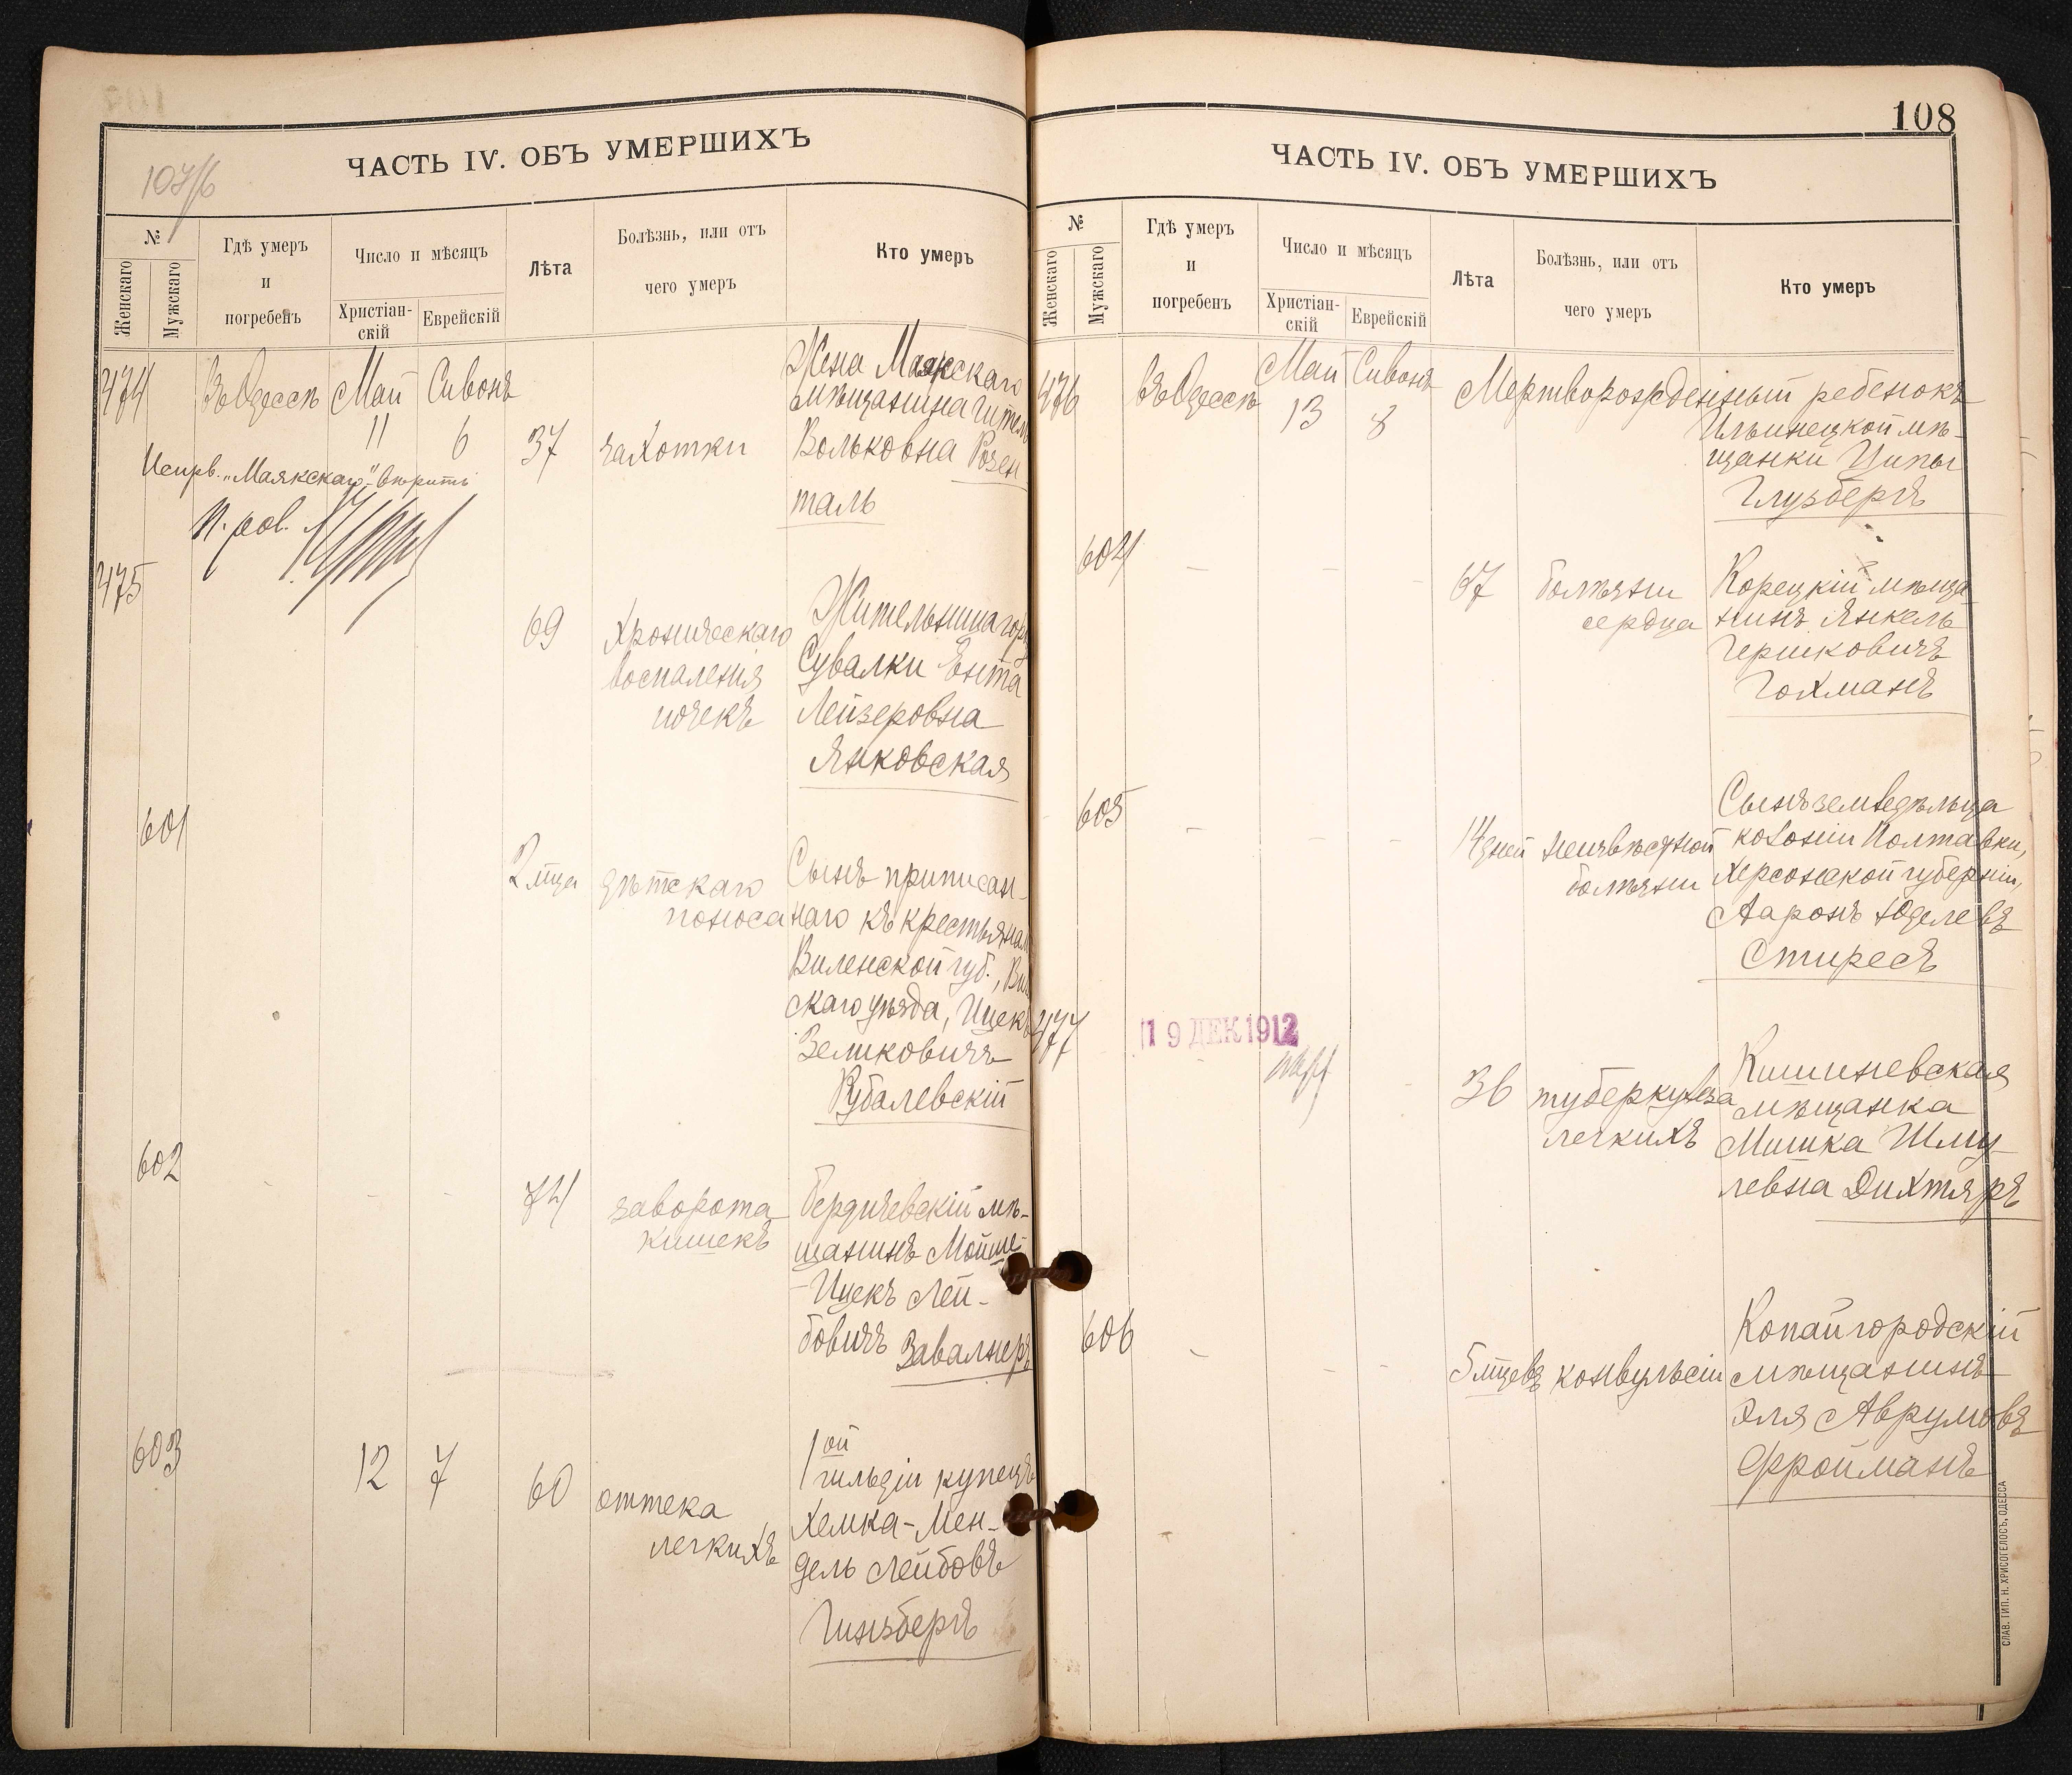 ЧАСТЬ IV. ОБЪ УМЕРШИХЪ
№
Женскаго
Мужскаго
Гдѣ умеръ
и
погребенъ
Число и мѣсяцъ
Христіан-
скій
Еврейскій
Лѣта
Болѣзнь, или отъ
чего умеръ
Кто умеръ
474
Въ Одессѣ
Май
11
Сивонъ
6
37
чахотки
Жена Маякскаго
мѣщанина Гитель
Вольковна Розен
таль
Испр. „Маякскаго" вѣрить
475
69
Хроническаго
воспаленія
почекъ
Жительница гор.
Сувалки Ента
Лейзеровна
Янковская
601
2 мца
дѣтскаго
поноса
Сынъ приписан-
наго къ крестьянам
Виленской губ.,
скаго уѣзда, Ицекъ
Зеликовичъ
Кубалевскій
602
74
заворота
кишекъ
Бердичевскій мѣ-
щанинъ Мойше-
-Ицекъ Лей-
бовичъ Завалнеръ
603
12
7
60
оттека
легкихъ
1ой
гильдіи купецъ
Хемка-Мен-
дель Лейбовъ
Гинзбергъ
108
ЧАСТЬ IV. ОБЪ УМЕРШИХЪ
№
Женскаго
Мужскаго
Гдѣ умеръ
и
погребенъ
Число и мѣсяцъ
Христіан-
скій
Еврейскій
Лѣта
Болѣзнь, или отъ
чего умеръ
Кто умеръ
476
въ Одессѣ
Май
13
Сивонъ
8
Мертворожденный ребенокъ
Ильинецкой мѣ-
щанки Ципы
Глузбергъ
604
67
болѣзни
сердца
Корецкій мѣща
нинъ Янкель
Гершковичъ
Гохманъ
605
14 дней
неизвѣстной
болѣзни
Сынъ земледѣльца
колоніи Полтавки,
Херсонской губерніи,
Ааронъ Юделевъ
Стиресъ
477
19 ДЕК 1912
36
туберкулеза
легкихъ
Кишиневская
мѣщанка
Мишка Шму
левна Дихтяръ
606
5 мцевъ
конвульсіи
Копайгородскій
мѣщанинъ
Эля Аврумовъ
Фройманъ
СЛАВ. ТИП. Н. ХРИСОГЕЛОСЪ, ОДЕССА